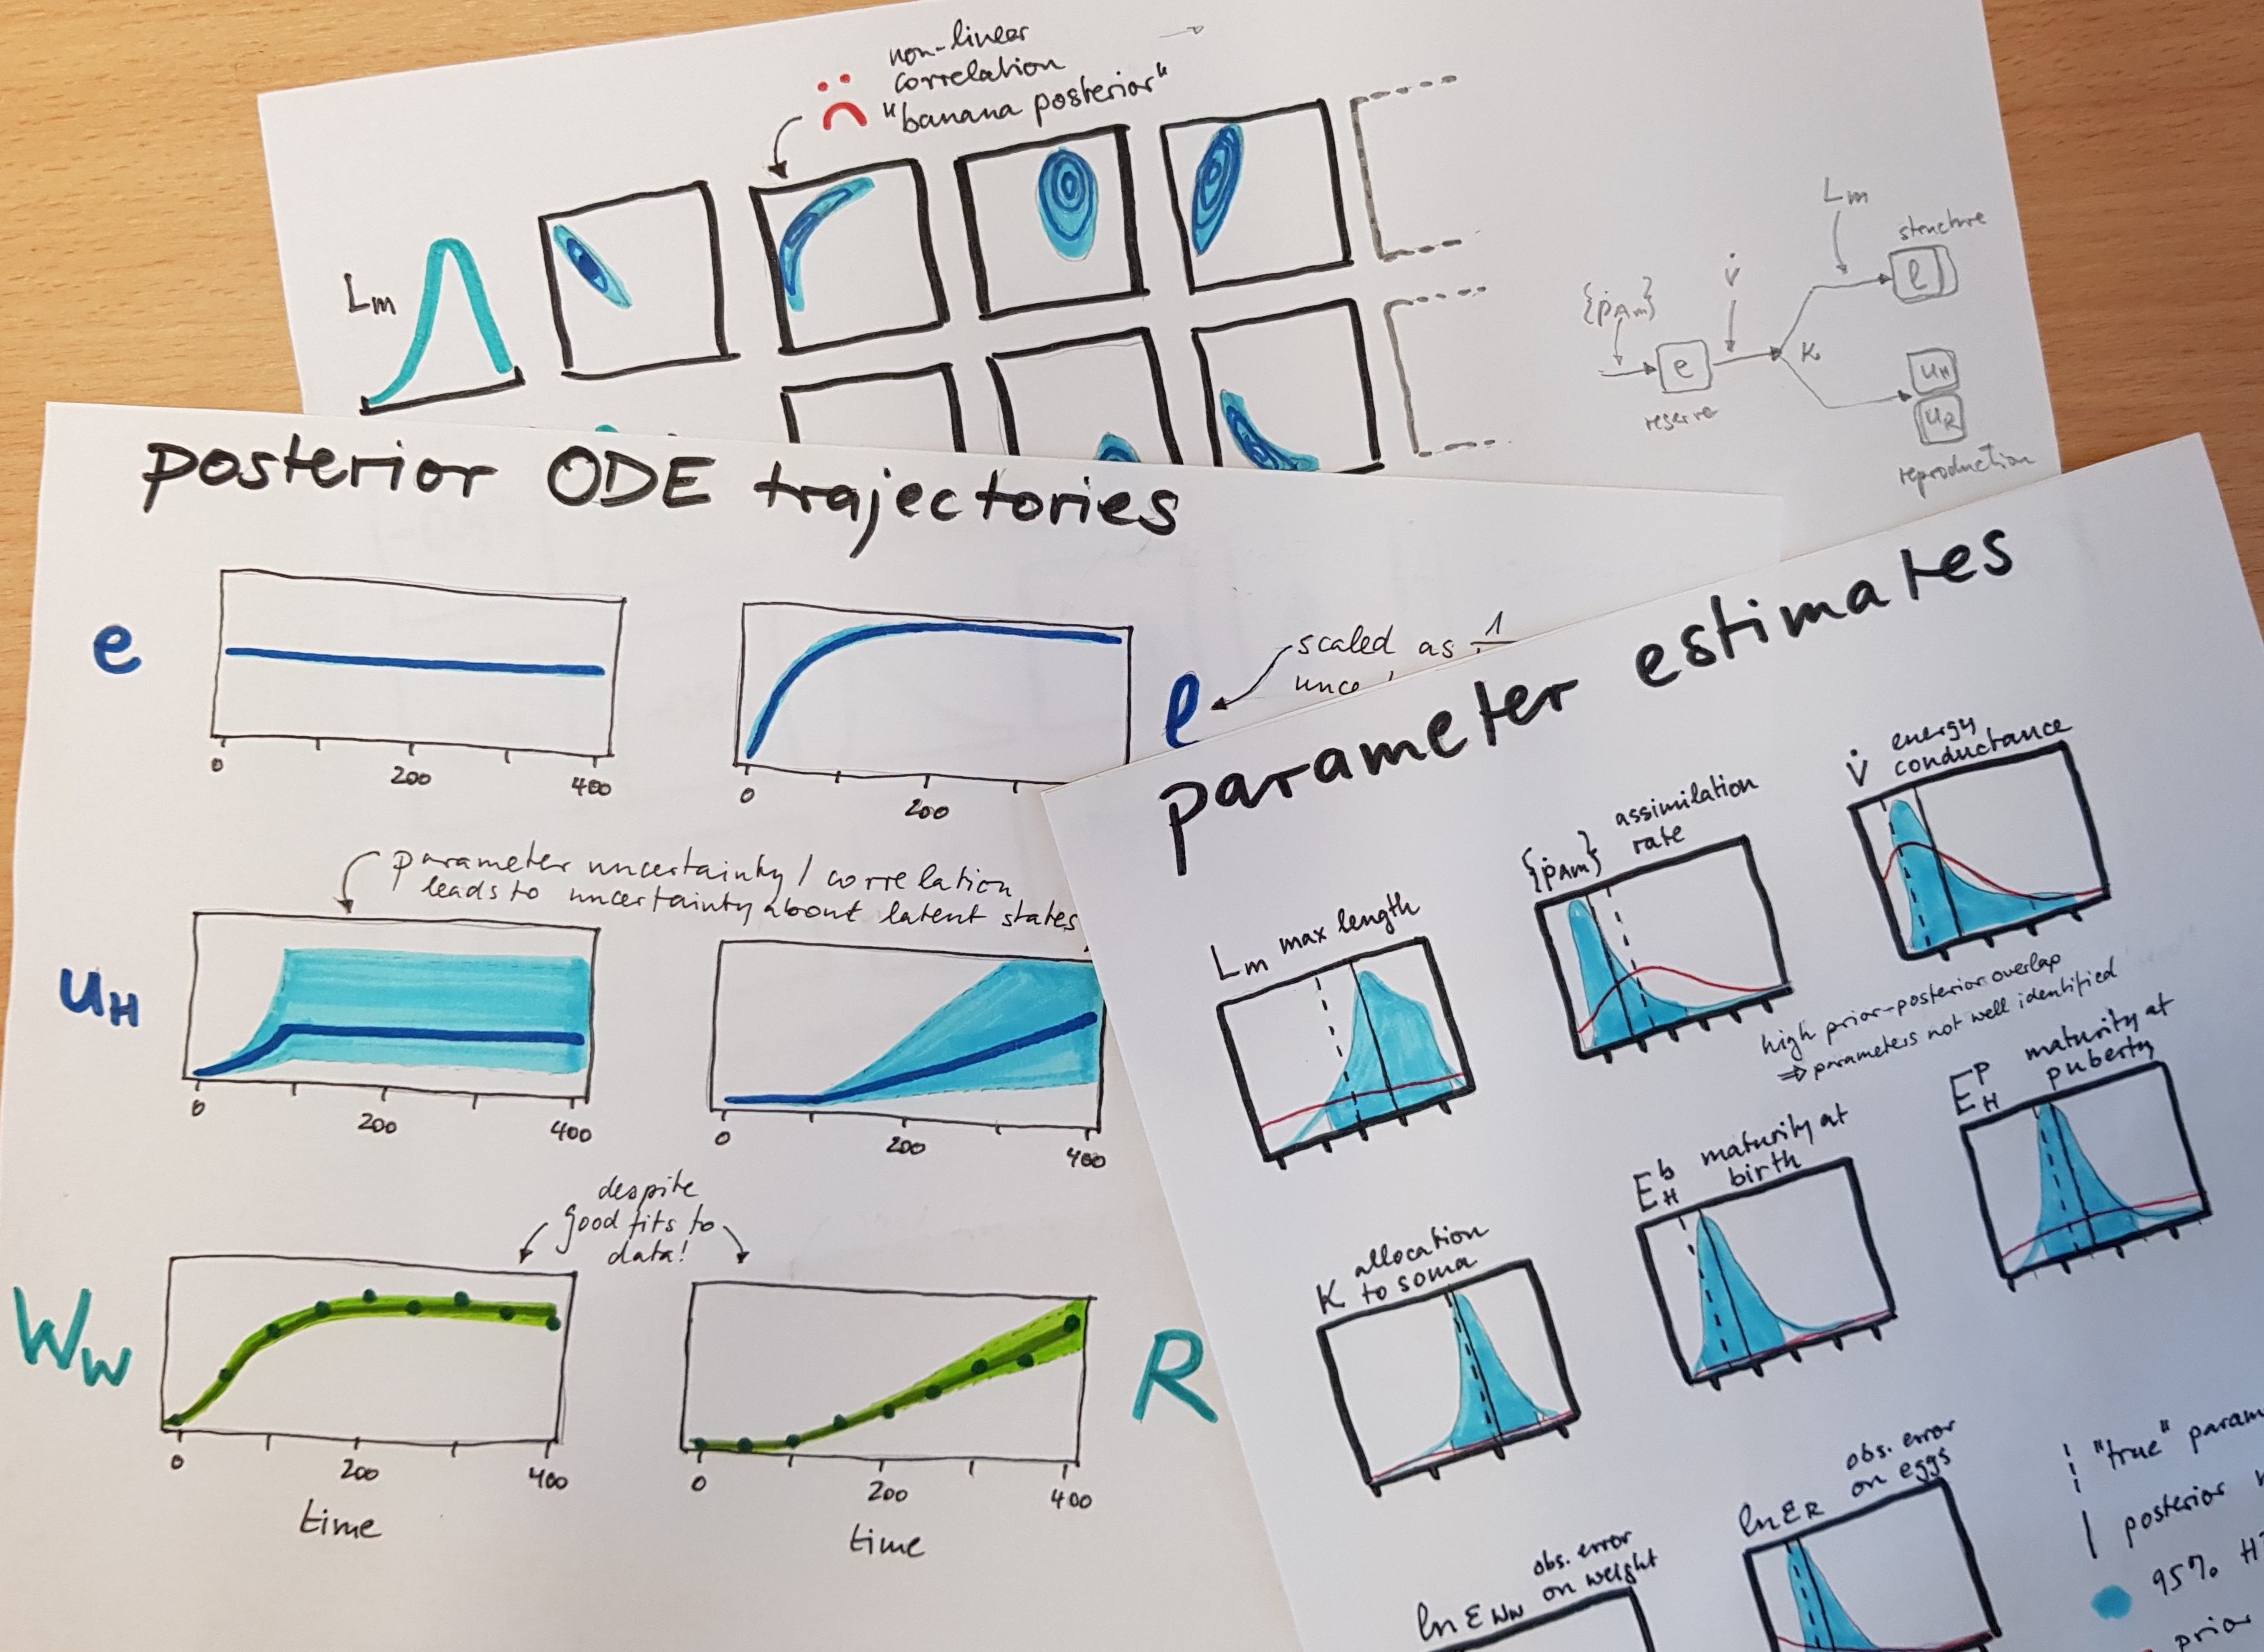 non-linear
correlation
"banana posterior"
Lm
Lm
structure
l
v̇
{ṗAm}
e
κ
reserve
uH
uR
reproduction
posterior ODE trajectories
e
0
200
400
0
200
l
scaled as 1
parameter uncertainty / correlation
leads to uncertainty about latent states
uH
0
200
400
0
200
400
despite
good fits to
data!
Ww
0
200
400
time
R
0
200
400
time
parameter estimates
Lm max length
{ṗAm} assimilation
rate
v̇ energy
conductance
high prior-posterior overlap
⇒ parameters not well identified
κ allocation
to soma
E_H^b maturity at
birth
E_H^p maturity at
puberty
ln εWw obs. error
on weight
ln εR obs. error
on eggs
"true" param
posterior
95%
prior